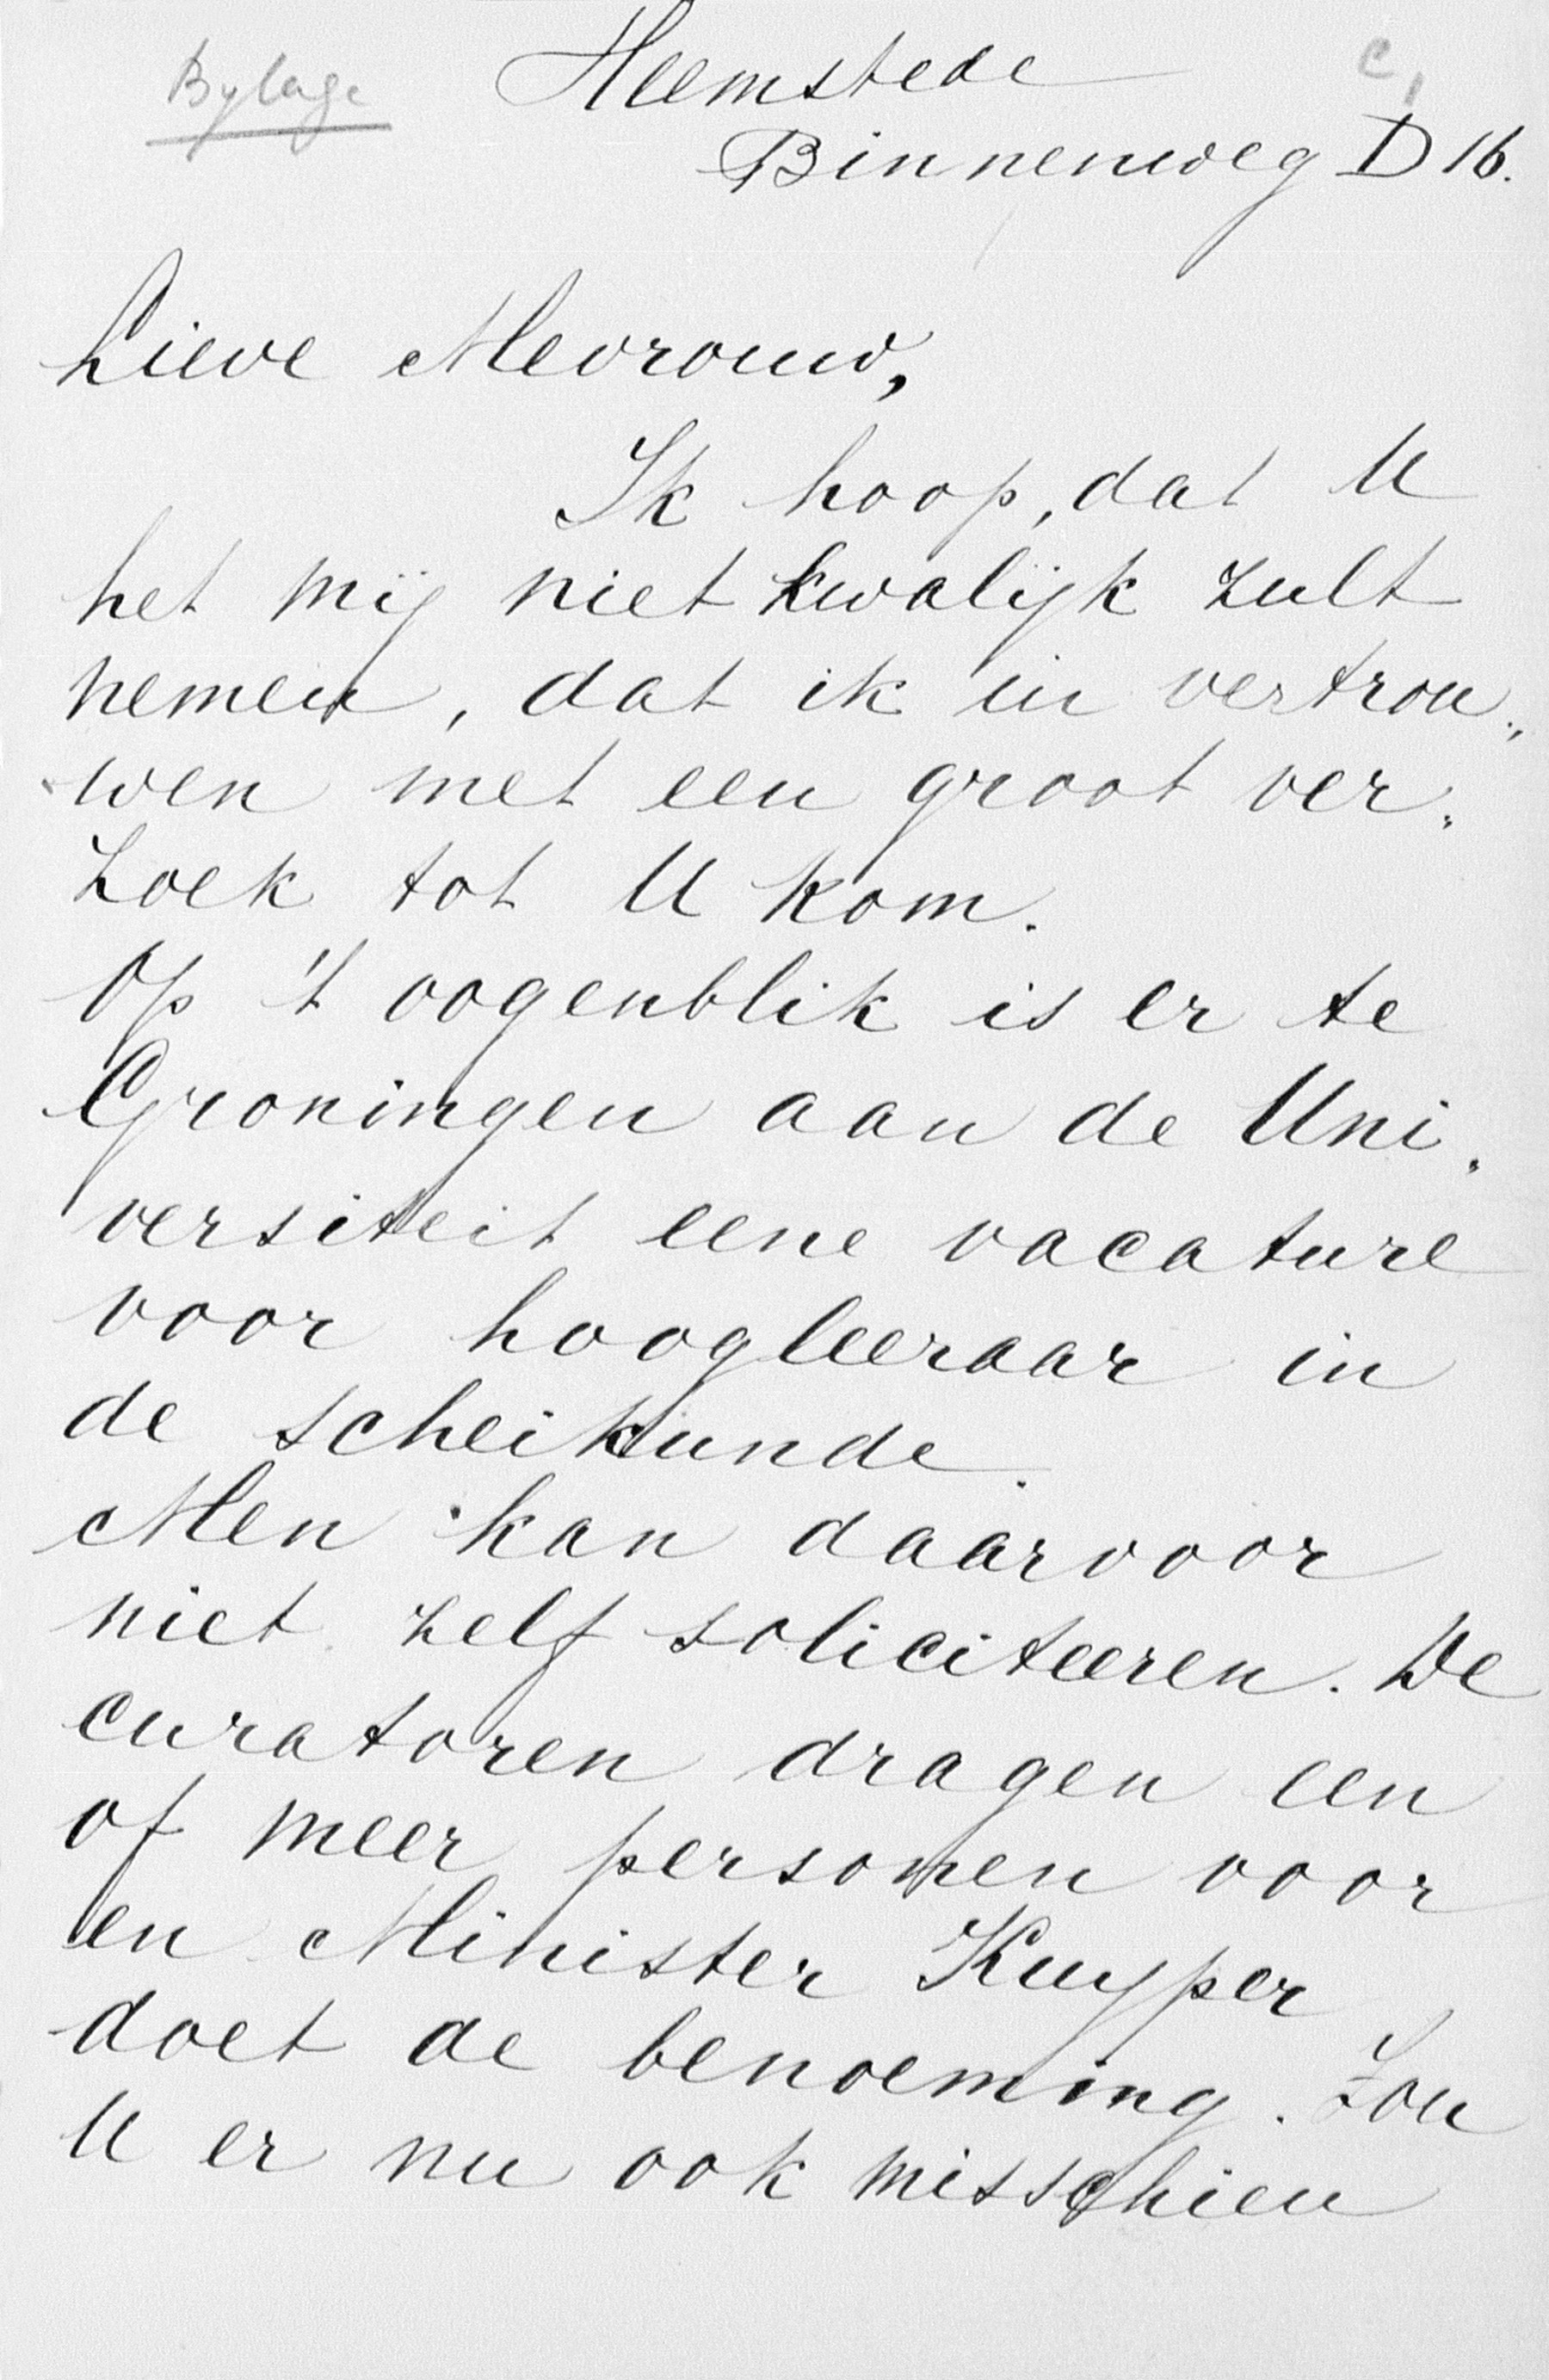 Bylage
Heemstede
c,
Binnenweg D 16.
Lieve Mevrouw,
Ik hoop, dat U
het mij niet kwalijk zult
nemen, dat ik in vertrou„
wen met een groot ver„
zoek tot U kom.
Op 't oogenblik is er te
Groningen aan de Uni„
versiteit eene vacature
voor hoogleeraar in
de scheikunde.
Men kan daarvoor
niet zelf soliciteeren. De
curatoren dragen een
of meer personen voor
en Minister Kuyper
doet de benoeming. Zou
U er nu ook misschien